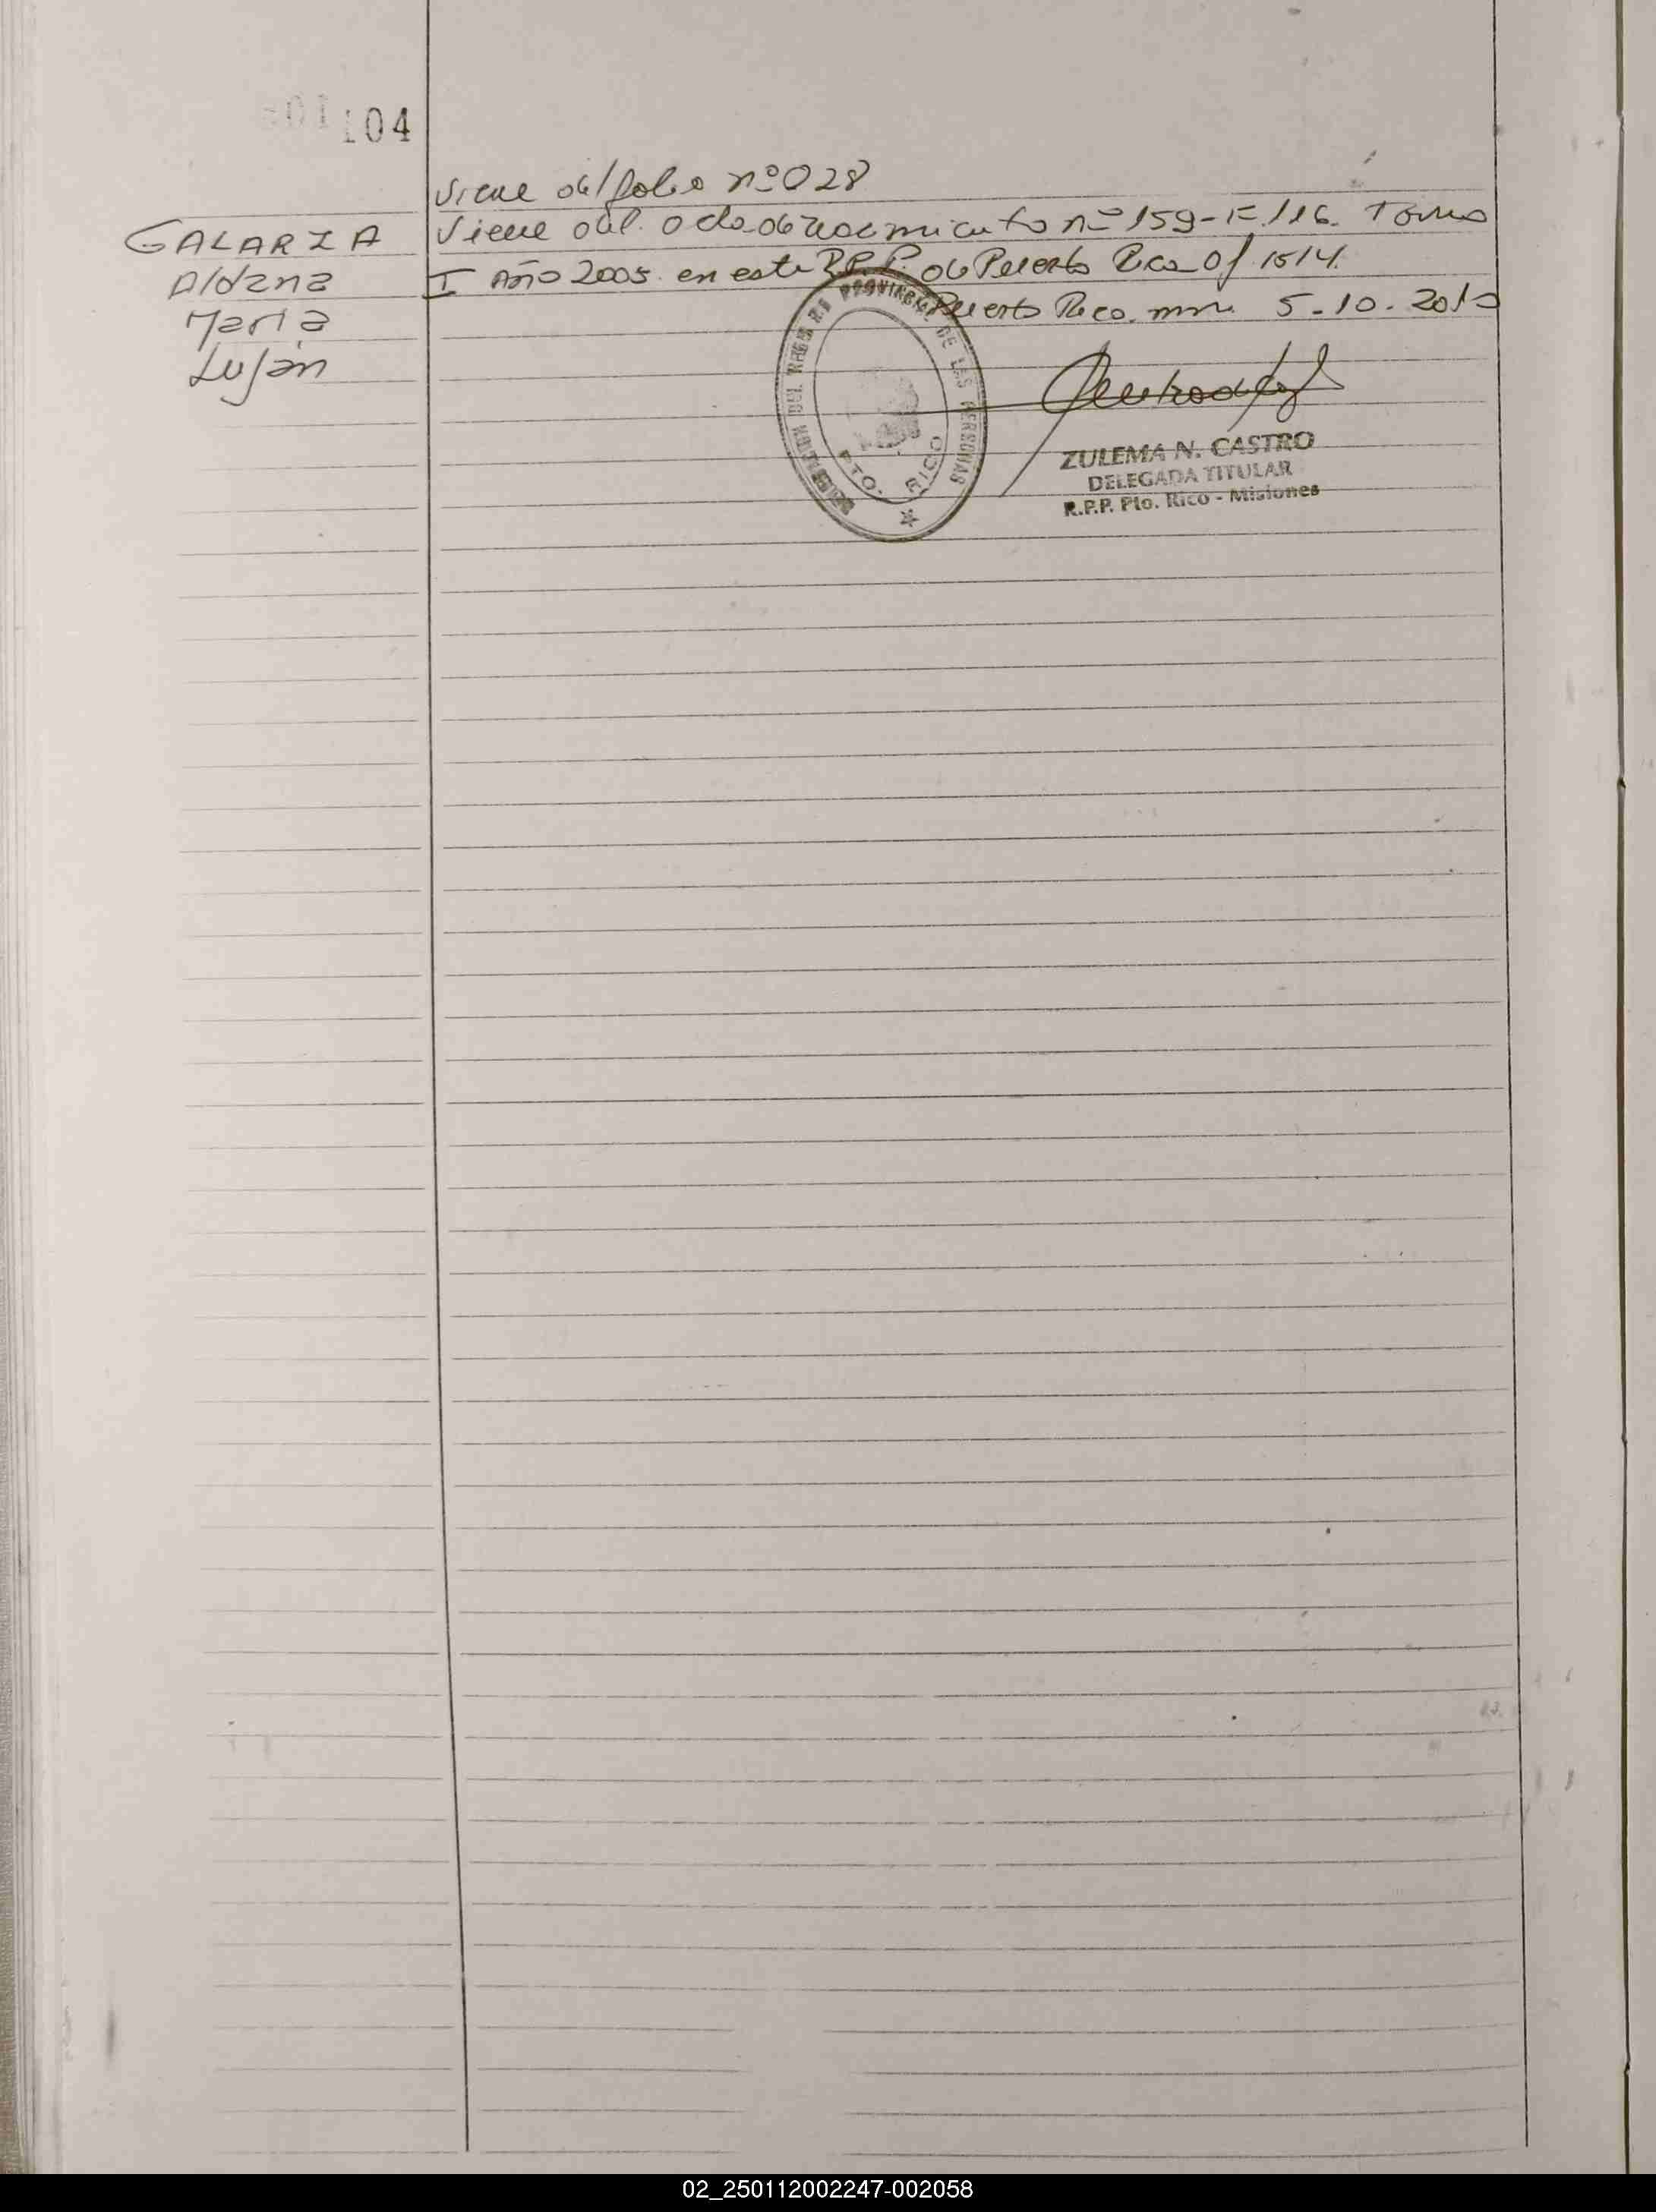 104
Viene del folio nº 028
GALARZA
Aldana
María
Luján
Viene del. acta de nacimiento nº 159-F.116. Tomo
I Año 2005. en este R.P.P. de Puerto Rico Of 1514.
Puerto Rico. mnes. 5-10-2010
PROVINCIAL DE LAS PERSONAS
PTO. RICO
ZULEMA N. CASTRO
DELEGADA TITULAR
R.P.P. Pto. Rico - Misiones
02_250112002247-002058